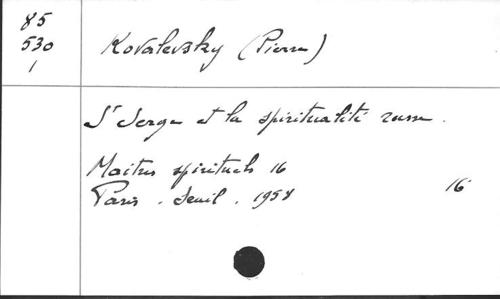 85
530
1
Kovalevsky (Pierre)
St Serge et la spiritualité russe.
Maitres spirituels 16
Paris. Seuil. 1958
16